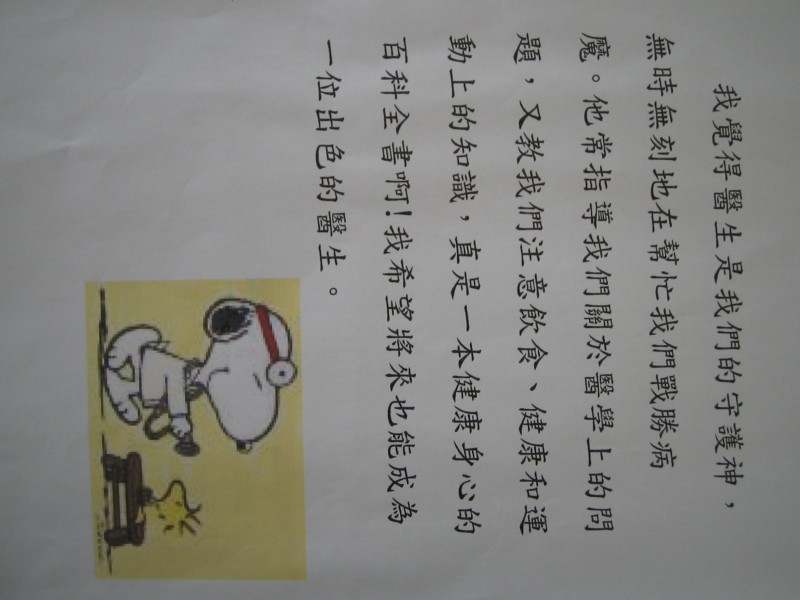 我覺得醫生是我們的守護神，
無時無刻地在幫忙我們戰勝病
魔。他常指導我們關於醫學上的問
題，又教我們注意飲食、健康和運
動上的知識，真是一本健康身心的
百科全書啊！我希望將來也能成為
一位出色的醫生。